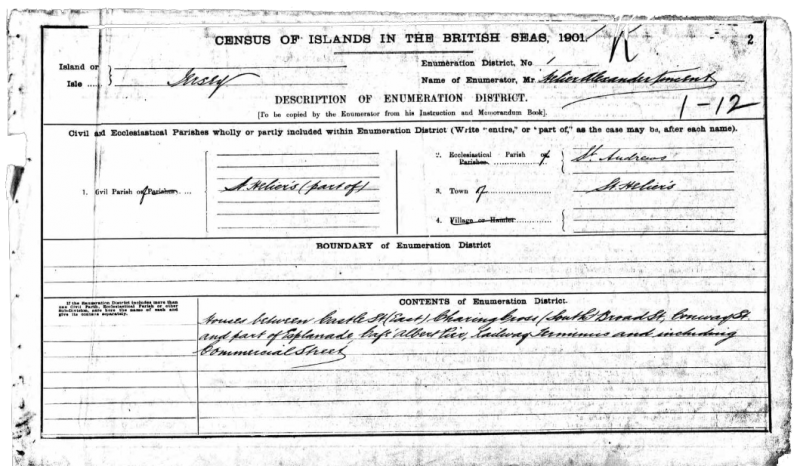 CENSUS OF ISLANDS IN THE BRITISH SEAS, 1901.
K
2
Island or Isle .....
Jersey
Enumeration District, No 1
Name of Enumerator, Mr. Helier Alexander
1-12
DESCRIPTION OF ENUMERATION DISTRICT.
[To be copied by the Enumerator from his Instruction and Memorandum Book].
Civil and Ecclesiastical Parishes wholly or partly included within Enumeration District (Write "entire," or "part of," as the case may be, after each name).
1. Civil Parish or Parishes ....
of
St. Helier's (part of)
2. Ecclesiastical Parish or Parishes
of
St. Andrews
3. Town of
St. Helier's
4. Village or Hamlet
BOUNDARY of Enumeration District
If the Enumeration District includes more than
one Civil Parish, Ecclesiastical Parish or other
Subdivision, note here the name of each and
give its contents separately.
CONTENTS of Enumeration District.
Houses between Castle St (East), Charing Cross (South) Broad St, Conway St
and part of Esplanade, Café Albert Pier, Railway Terminus and including
Commercial Street